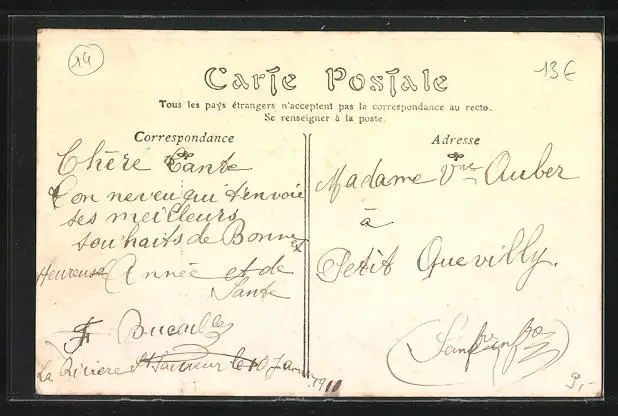 14
13€
Carte Postale
Tous les pays étrangers n'acceptent pas la correspondance au recto.
Se renseigner à la poste.
Correspondance
Chère Tante
Ton neveu qui t'envoie
ses meilleurs
souhaits de Bonne et
Heureuse Année et de
Sante
F Bucaille
La Riviere St Sauveur le 10 7
1911
Adresse
Madame Vve Auber
à
Petit Quevilly.
9,-